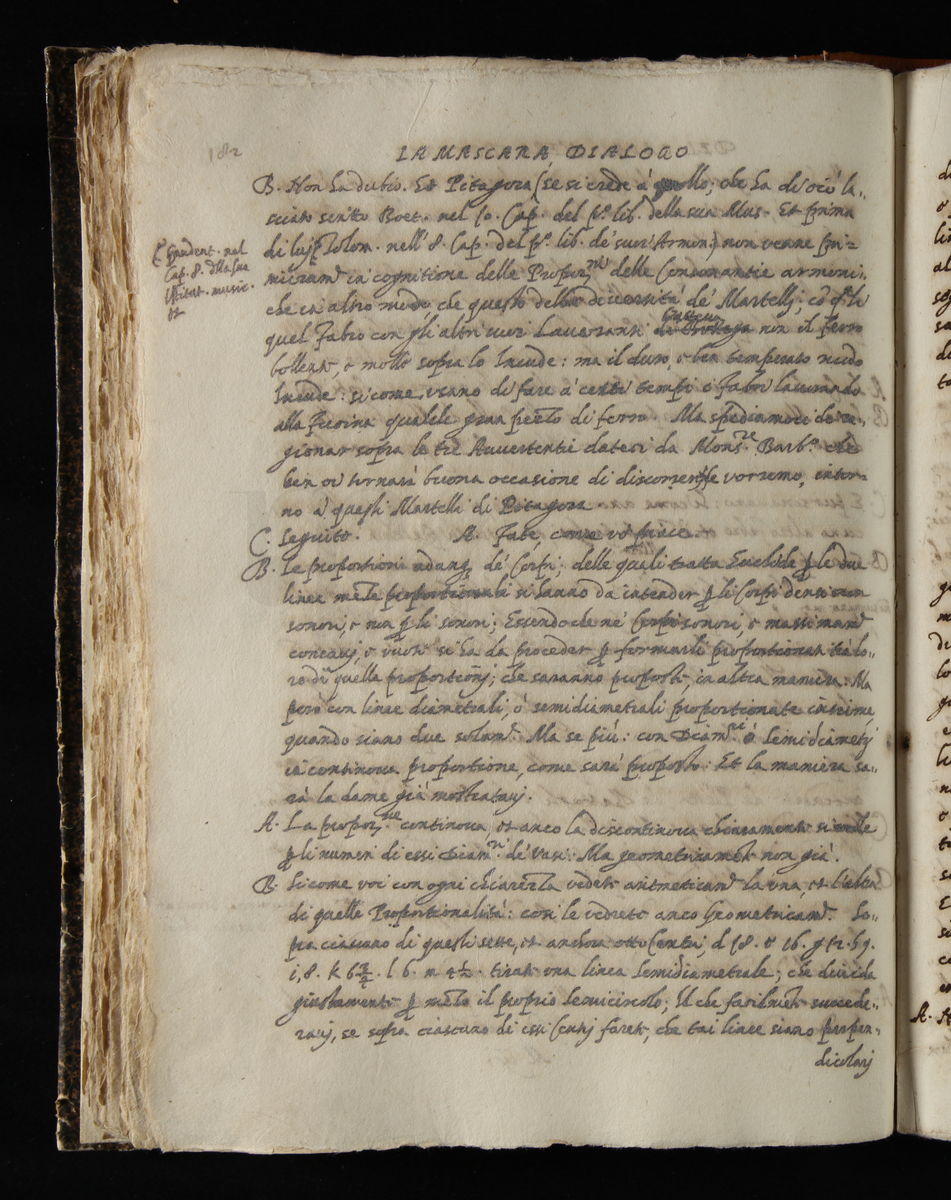 182
LA MASCARA DIALOGO
B. Non ha dubio. Et Pitagora (se si crede à quello, che ha di ciò la-
sciato scritto Boet. nel 10. Cap. del p.º lib. della sua Mus. Et prima
di lui Tolom. nell' 8. Cap. del p.º lib. de' suoi Armon.) non venne pri-
mieram.te in cognitione delle Propor.ni delle Consonantie armoni-
che in altro modo, che questo della diversità de' Martelli; co' q.li
quel Fabro con gli altri suoi Lavoranti batteva non il ferro
bollente, e molle sopra lo Incude: ma il duro, e ben temperato nudo
Incude: si come usano di fare à certi tempi i Fabri lavorando
alla fucina qualche gran pezzo di ferro. Ma spediamoci di ra-
gionar sopra le tre Avvertentie dateci da Mons.re Barb.º che
ben ci tornarà buona occasione di discorrer, se vorremo, intor-
no à questi Martelli di Pitagora
C. Seguito. A. Fate, come vi piace.
B. Le proportioni adunq; de' Corpi, delle quali tratta Euclide p le due
linee meze proportionali si hanno da intender p li Corpi densi non
sonori, e non p li sonori; Essendo che ne' Corpi sonori, e massimam.te
concavi, e vuoti si ha da proceder p formarli proportionati trà lo-
ro di quella proportioni; che saranno proposti, in altra maniera: Ma
però con linee diametrali, ò semidiametrali proportionate insieme,
quando siano due solam.te Ma se più: con Diam.tri ò Semidiametri
in continova proportione, come sarà proposto: Et la maniera sa-
rà la dame già mostratavi.
A. La propor.ne continova, et anco la discontinova chiaramente si vede
p li numeri di essi Diam.tri de' vasi: Ma geometricamente non già.
B. Si come voi con ogni chiarezza vedete aritmeticam.te la una, et l'altra
di quelle Proportionalità: così le vedrete anco Geometricam.te So-
pra ciascuno di questi sette, et anchora otto Centri, d 18. e 16. g 12. h 9.
i, 8. k 6 3/4. l 6. m 4 1/2. tirate una linea semidiametrale; che divida
giustamente p mezo il proprio semicircolo; Il che facilmente succede-
ravi, se sopra ciascuno di essi Centri farete, che tai linee siano perpen-
dicolari
Gaudent. nel
Cap. 8. della sua
music.
et